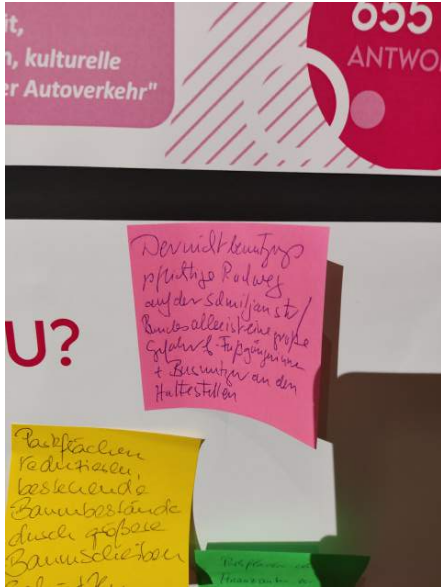 655
it,
ANTWO
n, kulturelle
er Autoverkehr"
Der nicht benutzungs
pflichtige Radweg
auf der Schmiljanstr/
Bundesallee ist eine große
Gefahr f. Fußgängerinnen
+ Busnutzer an den
Haltestellen
U?
Parkflächen
reduzieren,
bestehende
Baumbestände
durch größere
Baumscheiben
Parkflächen